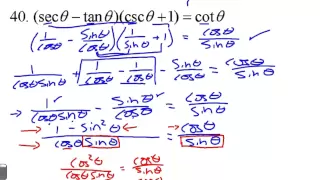 40. (secθ − tanθ)(cscθ + 1) = cotθ
(1/cosθ − sinθ/cosθ)(1/sinθ + 1) = cosθ/sinθ
1/cosθsinθ + 1/cosθ − 1/cosθ − sinθ/cosθ = cosθ/sinθ
1/cosθsinθ − sinθ/cosθ = cosθ/sinθ
→ 1 − sin²θ ← / → cosθ sinθ = → cosθ / sinθ
cos²θ/cosθsinθ = cosθ/sinθ
cosθ = cosθ